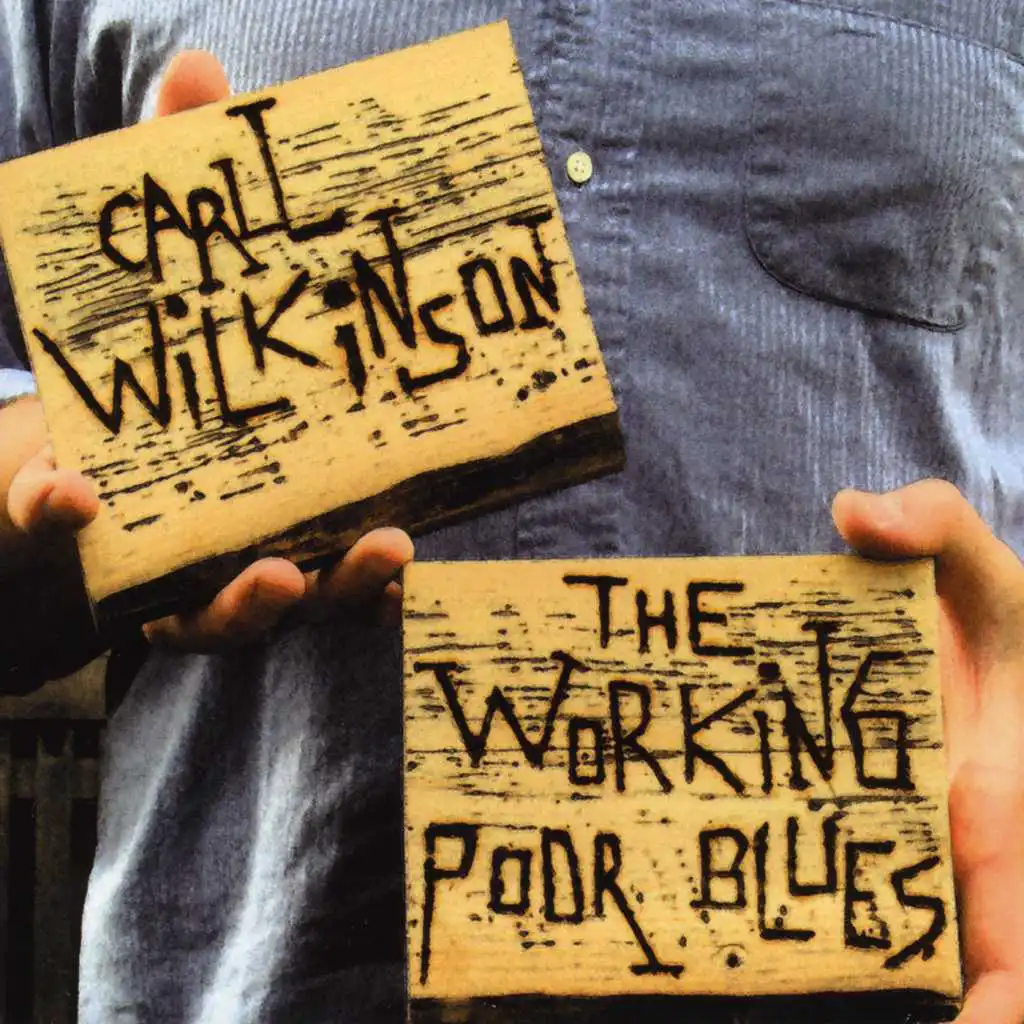 CARLL
WiLKiNSON
THE
WORKiNG
POOR BLUES